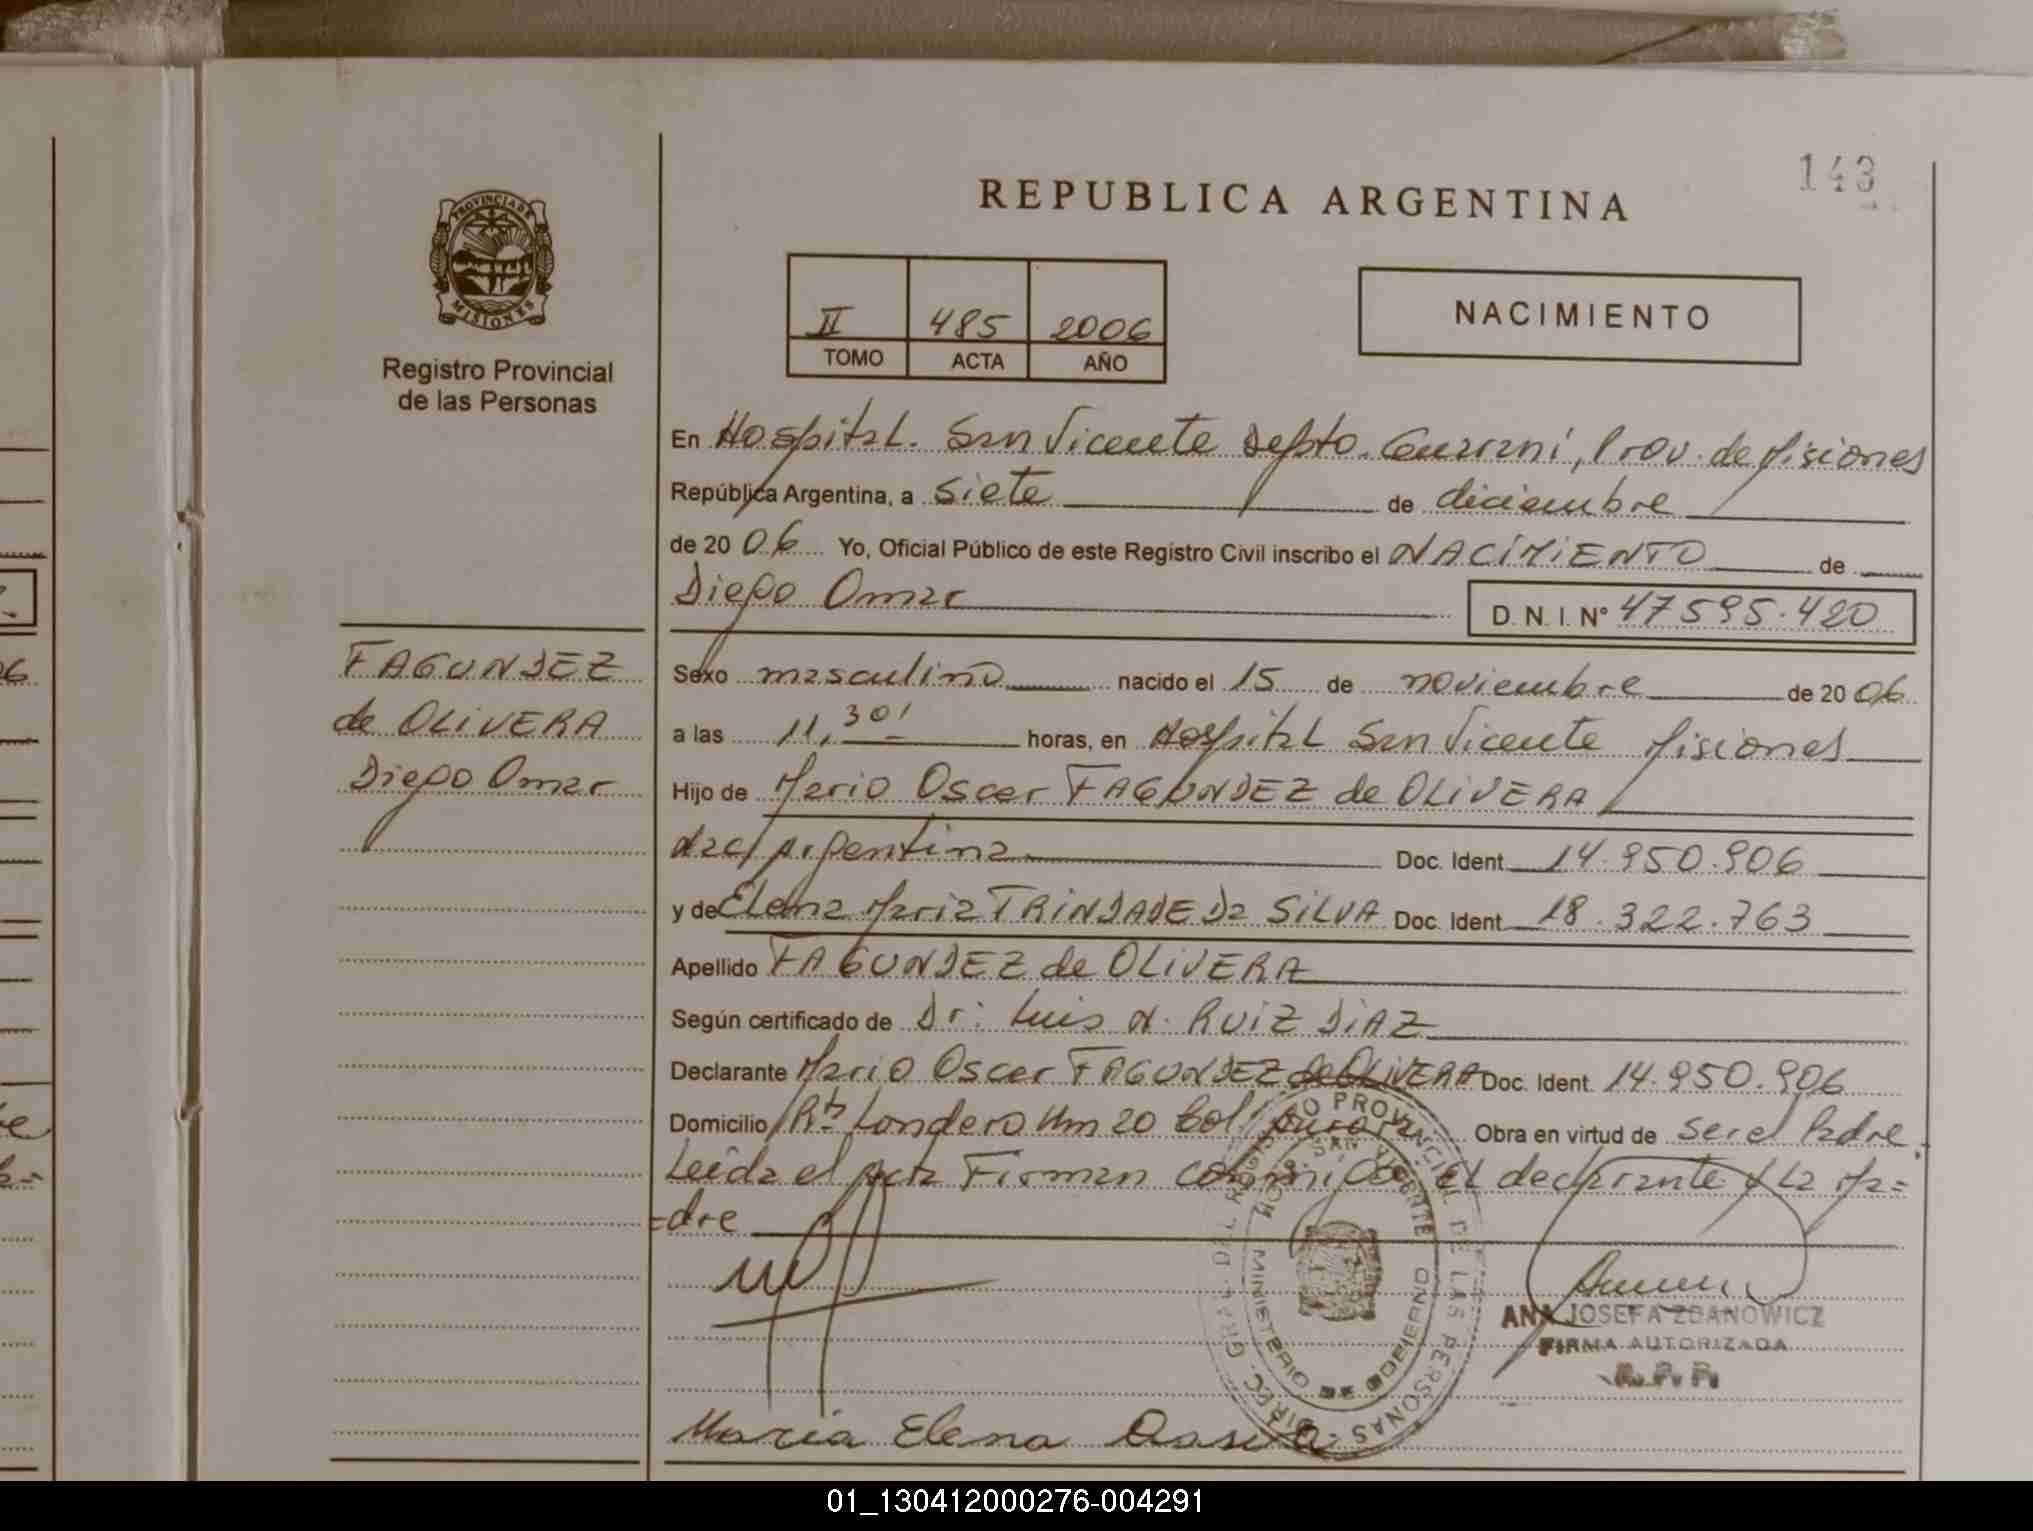 143
REPUBLICA ARGENTINA
PROVINCIA DE
MISIONES
Registro Provincial
de las Personas
II 485 2006
TOMO ACTA AÑO
NACIMIENTO
En Hospital. San Vicente Depto. Guarani, Prov. de Misiones
República Argentina, a siete de diciembre
de 2006 Yo, Oficial Público de este Registro Civil inscribo el NACIMIENTO de
Diego Omar
D. N. I. Nº 47595.420
FAGUNDEZ
de OLIVERA
Diego Omar
Sexo masculino nacido el 15 de noviembre de 2006
a las 11,30' horas, en Hospital San Vicente Misiones
Hijo de Mario Oscar FAGUNDEZ de OLIVERA
Nac/Argentina Doc. Ident. 14.950.906
y de Elena Maria TRINDADE Da SILVA Doc. Ident. 18.322.763
Apellido FAGUNDEZ de OLIVERA
Según certificado de Dr: Luis N. RUIZ DIAZ
Declarante Mario Oscar FAGUNDEZ de OLIVERA Doc. Ident. 14.950.906
Domicilio Londero Km 20 Obra en virtud de ser el Padre.
Leida el Acta Firman conmigo el declarante y La Ma=
=dre
DIREC. GRAL. DEL REGISTRO PROVINCIAL DE LAS PERSONAS
MINISTERIO DE GOBIERNO
ANA JOSEFA ZDANOWICZ
FIRMA AUTORIZADA
R.P.P.
Maria Elena
01_130412000276-004291